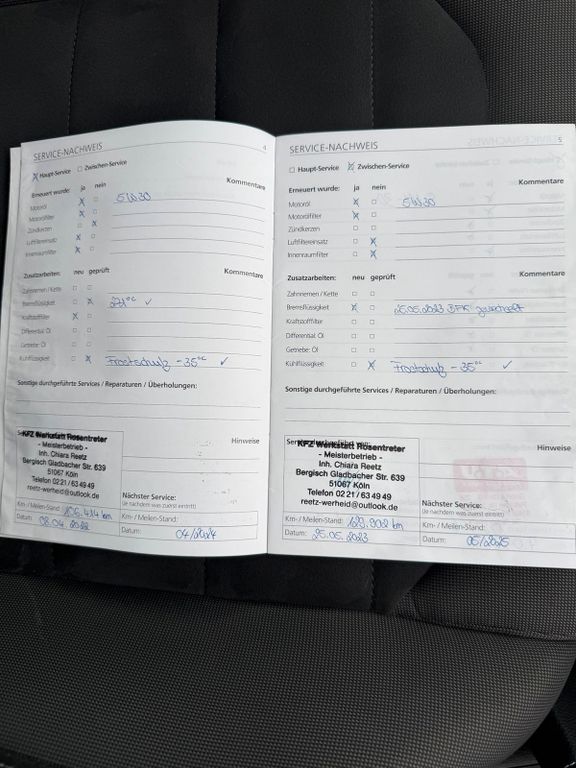 SERVICE-NACHWEIS 4
Haupt-Service Zwischen-Service
Erneuert wurde: ja nein Kommentare
Motoröl 5W30
Motorölfilter
Zündkerzen
Luftfiltereinsatz
Innenraumfilter
Zusatzarbeiten: neu geprüft Kommentare
Zahnriemen / Kette
Bremsflüssigkeit 271°C ✓
Kraftstofffilter
Differential: Öl
Getriebe: Öl
Kühlflüssigkeit Frostschutz -35°C ✓
Sonstige durchgeführte Services / Reparaturen / Überholungen:
Hinweise
KFZ Werkstatt Rosentreter
- Meisterbetrieb -
Inh. Chiara Reetz
Bergisch Gladbacher Str. 639
51067 Köln
Telefon 02 21 / 63 49 49
reetz-werheid@outlook.de
Nächster Service:
(je nachdem was zuerst eintritt)
Km- / Meilen-Stand: 106.414 km Km- / Meilen-Stand:
Datum: 08.04.2022 Datum: 04/2024
SERVICE-NACHWEIS 5
Haupt-Service Zwischen-Service
Erneuert wurde: ja nein Kommentare
Motoröl 5W30
Motorölfilter
Zündkerzen
Luftfiltereinsatz
Innenraumfilter
Zusatzarbeiten: neu geprüft Kommentare
Zahnriemen / Kette
Bremsflüssigkeit 25.05.2023 BFK gewechselt
Kraftstofffilter
Differential: Öl
Getriebe: Öl
Kühlflüssigkeit Frostschutz -35°C ✓
Sonstige durchgeführte Services / Reparaturen / Überholungen:
Hinweise
KFZ Werkstatt Rosentreter
- Meisterbetrieb -
Inh. Chiara Reetz
Bergisch Gladbacher Str. 639
51067 Köln
Telefon 02 21 / 63 49 49
reetz-werheid@outlook.de
Nächster Service:
(je nachdem was zuerst eintritt)
Km- / Meilen-Stand: 129.902 km Km- / Meilen-Stand:
Datum: 25.05.2023 Datum: 05/2025